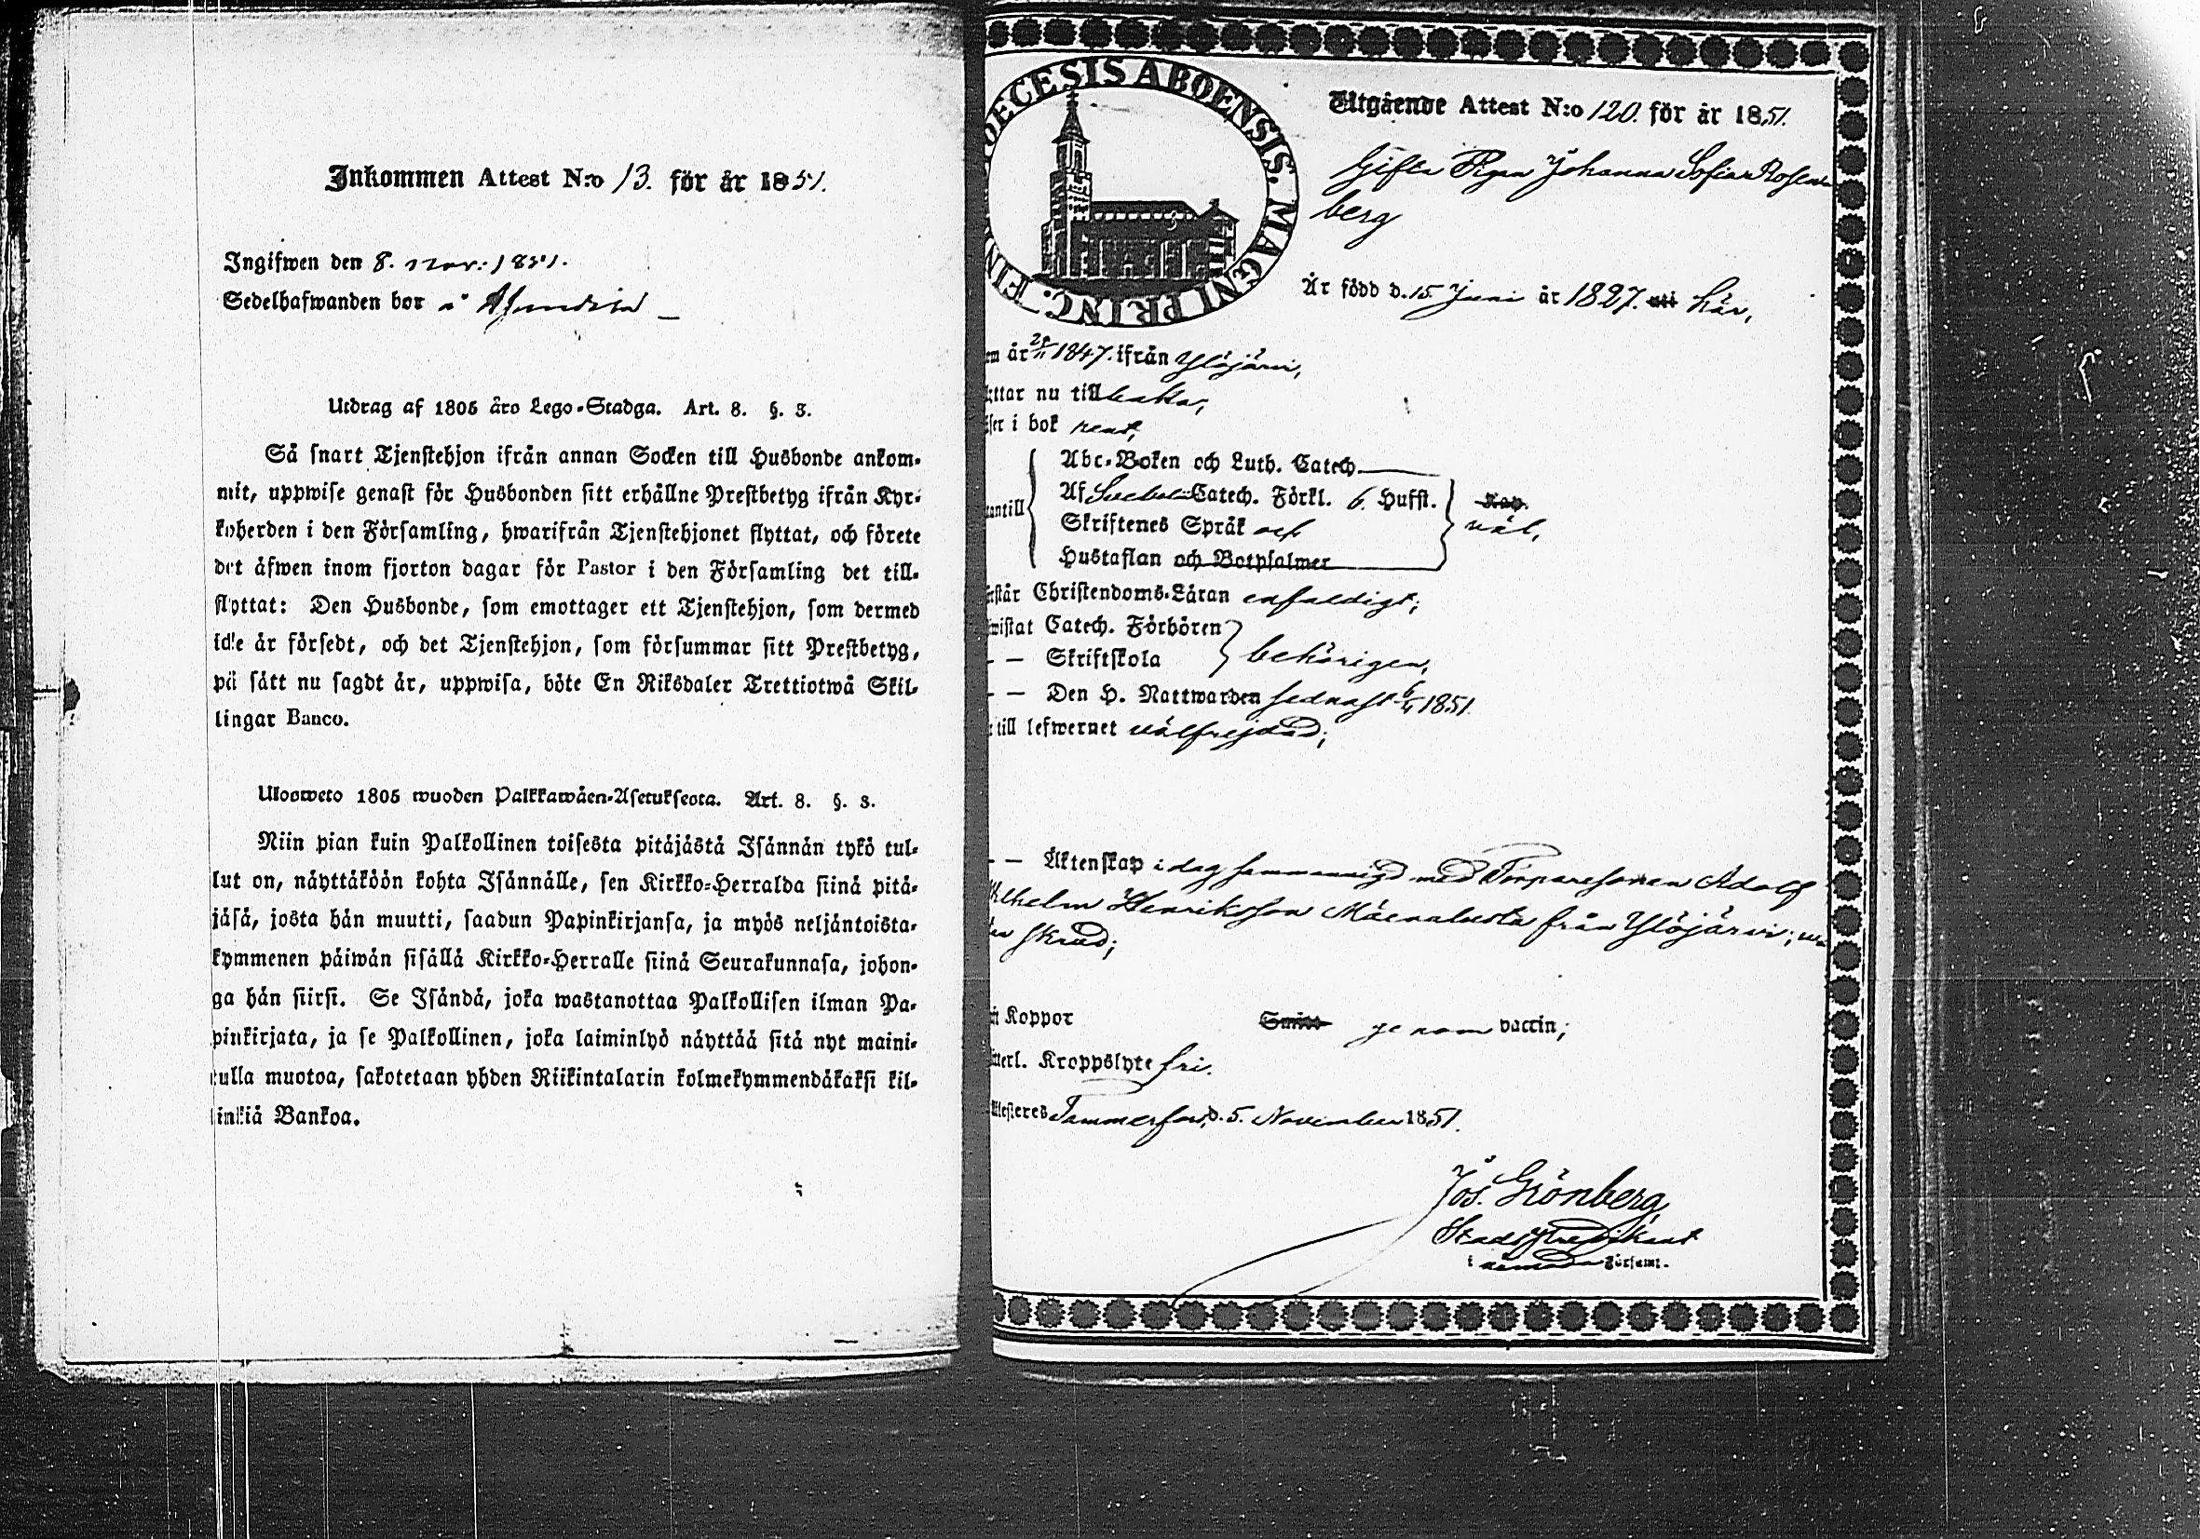 Inkommen Attest N:o 13. för år 1851.
Ingifwen den 8. nov: 1851.
Sedelhafwanden bor å
Utdrag af 1805 års Lego-Stadga. Art. 8. §. 3.
Så snart Tjenstehjon ifrån annan Socken till Husbonde ankom-
mit, uppwise genast för Husbonden sitt erhållne Prestbetyg ifrån Kyr-
koherden i den Församling, hwarifrån Tjenstehjonet flyttat, och förete
det äfwen inom fjorton dagar för Pastor i den Församling det till-
flyttat: Den Husbonde, som emottager ett Tjenstehjon, som dermed
icke är försedt, och det Tjenstehjon, som försummar sitt Prestbetyg,
på sätt nu sagdt är, uppwisa, böte En Riksdaler Trettiotwå Skil-
lingar Banco.
Ulosweto 1805 wuoden Palkkawäen-Asetuksesta. Art. 8. §. 3.
Niin pian kuin Palkollinen toisesta pitäjästä Isännän tykö tul-
lut on, näyttäköön kohta Isännälle, sen Kirkko-Herralda siinä pitä-
jäsä, josta hän muutti, saadun Papinkirjansa, ja myös neljäntoista-
kymmenen päiwän sisällä Kirkko-Herralle siinä Seurakunnasa, johon-
ga hän siirsi. Se Isändä, joka wastanottaa Palkollisen ilman Pa-
pinkirjata, ja se Palkollinen, joka laiminlyö näyttää sitä nyt maini-
tulla muotoa, sakotetaan yhden Riikintalarin kolmekymmendäkaksi kil-
linkiä Bankoa.
DECESIS ABOENSIS. MAGNI PRINC. FIN
Utgående Attest N:o 120. för år 1851.
Gifta Pigan Johanna Sofia Rosen-
berg
Är född d. 15 Juni år 1827. uti här,
m år 1847. ifrån Ylöjärvi,
ttar nu tillbaka,
ser i bok rent,
Abc-Boken och Luth. Catech.
antill Af Catech. Förkl. 6. Hufst. Kap.
Skriftenes Språk och väl,
Hustaflan och Botpsalmer
rstår Christendoms-Läran enfaldigt;
wistat Catech. Förhören
– – Skriftskola behörigen,
– – Den H. Nattwarden sednast 1851.
till lefwernet välfrejdad;
– – Äktenskap i dag sammanvigd med Torparesonen Adolf
Wilhelm Henriksson Mäenalusta från Ylöjärvi;
skrud;
Koppor Smitt- genom vaccin;
tterl. Kroppslyte fri.
ttesteres Tammerfors, d. 5. November 1851.
Jos. Grönberg,
Stadspredikant
i nämnda Församl.